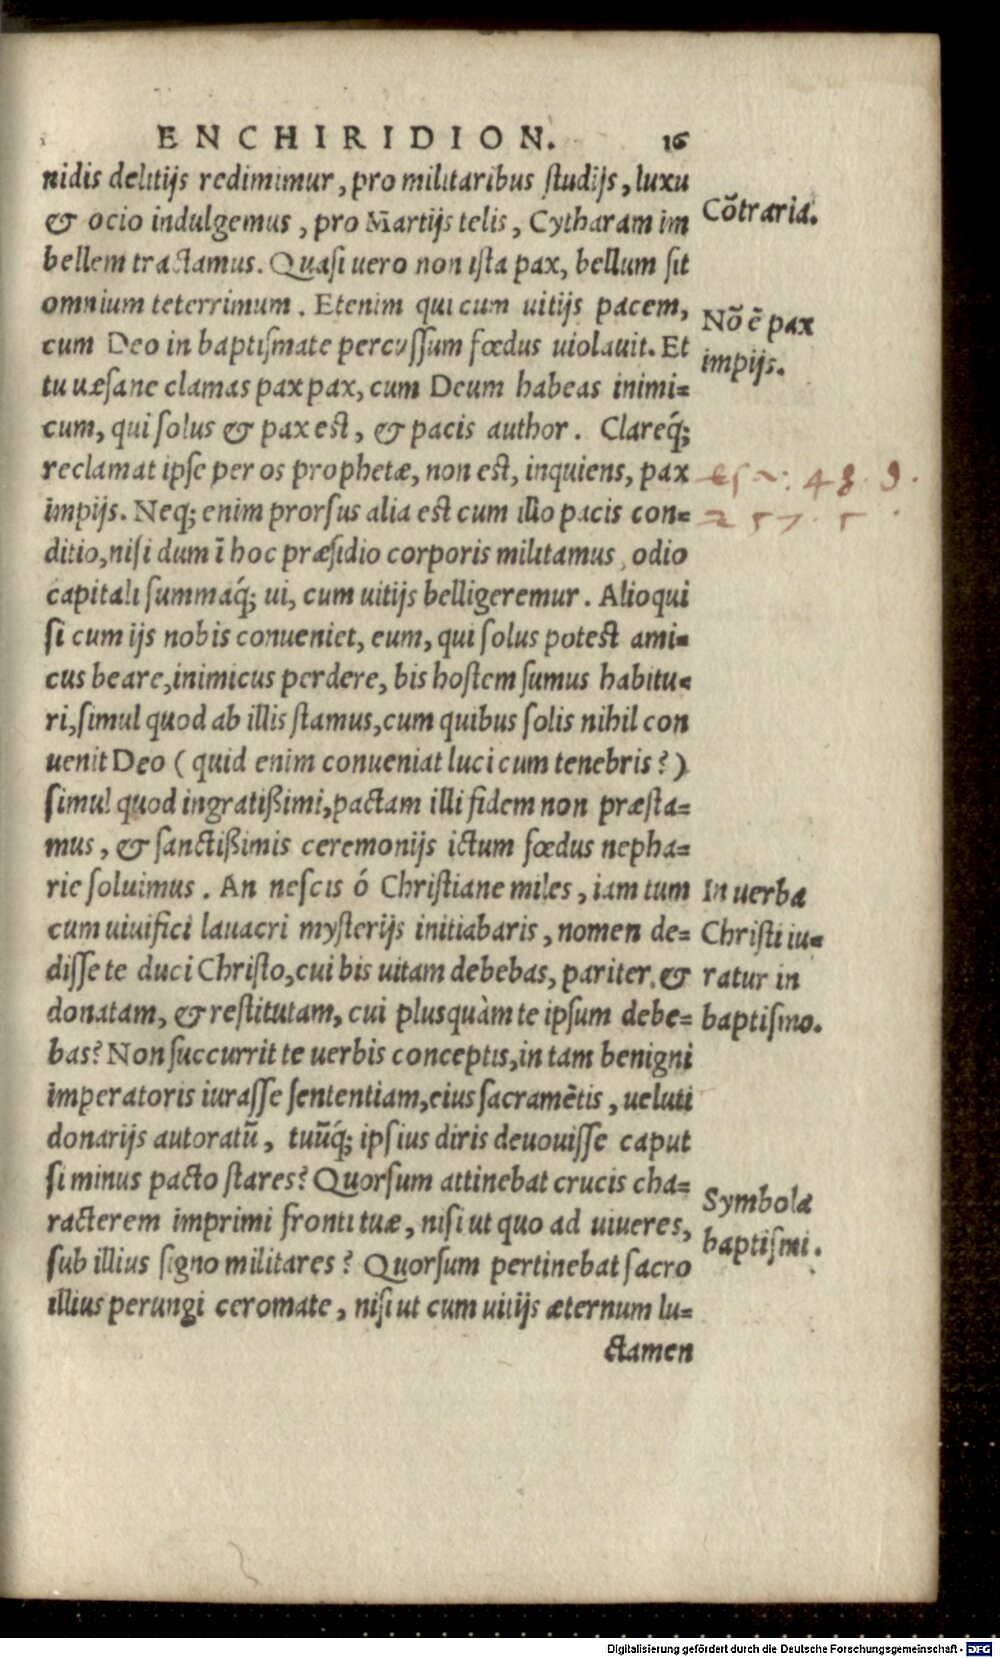 ENCHIRIDION. 16
nidis delitijs redimimur, pro militaribus ſtudijs, luxu
& ocio indulgemus, pro Martijs telis, Cytharam im
bellem tractamus. Quaſi uero non iſta pax, bellum ſit
omnium teterrimum. Etenim qui cum uitijs pacem,
cum Deo in baptiſmate percuſſum fœdus uiolauit. Et
tu uæſane clamas pax pax, cum Deum habeas inimi=
cum, qui ſolus & pax eſt, & pacis author. Clareq́;
reclamat ipſe per os prophetæ, non eſt, inquiens, pax
impijs. Neq; enim prorſus alia eſt cum illo pacis con=
ditio, niſi dum ī hoc præſidio corporis militamus, odio
capitali ſummaq́; ui, cum uitijs belligeremur. Alioqui
ſi cum ijs nobis conueniet, eum, qui ſolus poteſt ami=
cus beare, inimicus perdere, bis hoſtem ſumus habitu=
ri, ſimul quod ab illis ſtamus, cum quibus ſolis nihil con
uenit Deo (quid enim conueniat luci cum tenebris?)
ſimul quod ingratißimi, pactam illi fidem non præſta=
mus, & ſanctißimis ceremonijs ictum fœdus nepha=
rie ſoluimus. An neſcis ó Chriſtiane miles, iam tum
cum uiuifici lauacri myſterijs initiabaris, nomen de=
diſſe te duci Chriſto, cui bis uitam debebas, pariter, &
donatam, & reſtitutam, cui plus quàm te ipſum debe=
bas? Non ſuccurrit te uerbis conceptis, in tam benigni
imperatoris iuraſſe ſententiam, eius ſacramētis, ueluti
donarijs autoratū, tuūq́; ipſius diris deuouiſſe caput
ſi minus pacto ſtares? Quorſum attinebat crucis cha=
racterem imprimi fronti tuæ, niſi ut quo ad uiueres,
ſub illius ſigno militares? Quorſum pertinebat ſacro
illius perungi ceromate, niſi ut cum uitijs æternum lu=
ctamen
Cōtraria.
Nō ē pax
impijs.
48. 9.
57.
In uerba
Chriſti iu=
ratur in
baptiſmo.
Symbola
baptiſmi.
Digitalisierung gefördert durch die Deutsche Forschungsgemeinschaft - DFG